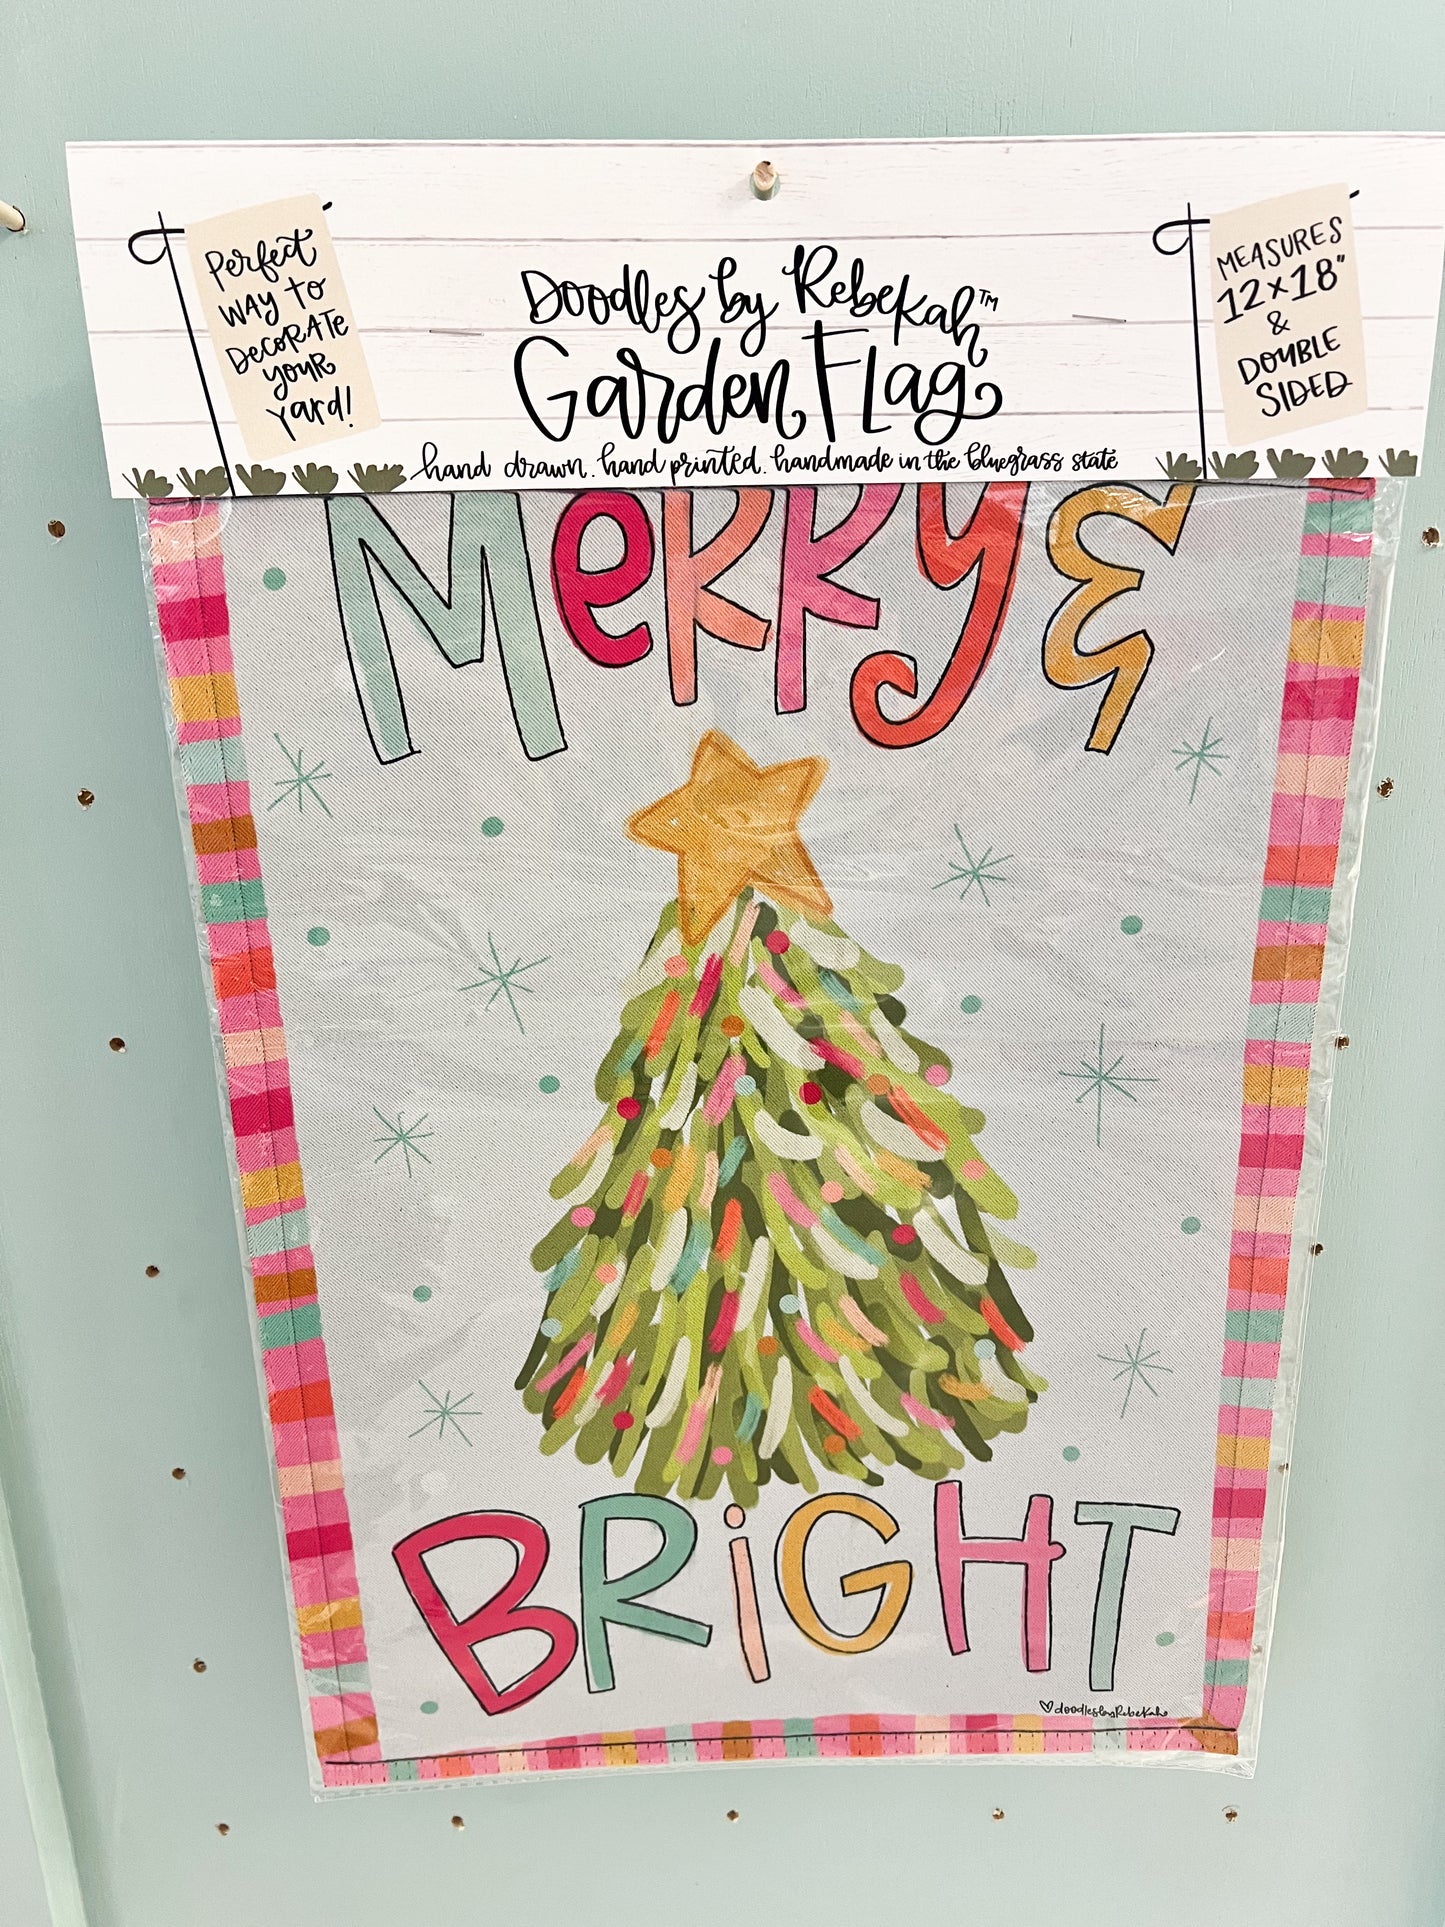 Perfect
WAY to
DecoRATe
youR
yard!
Doodles by Rebekah™
Garden Flag
hand drawn. hand printed. handmade in the bluegrass state
MEASURES
12x18"
&
DOUBLE
SIDED
MeRRy &
BRiGHT
doodlesbyRebekah